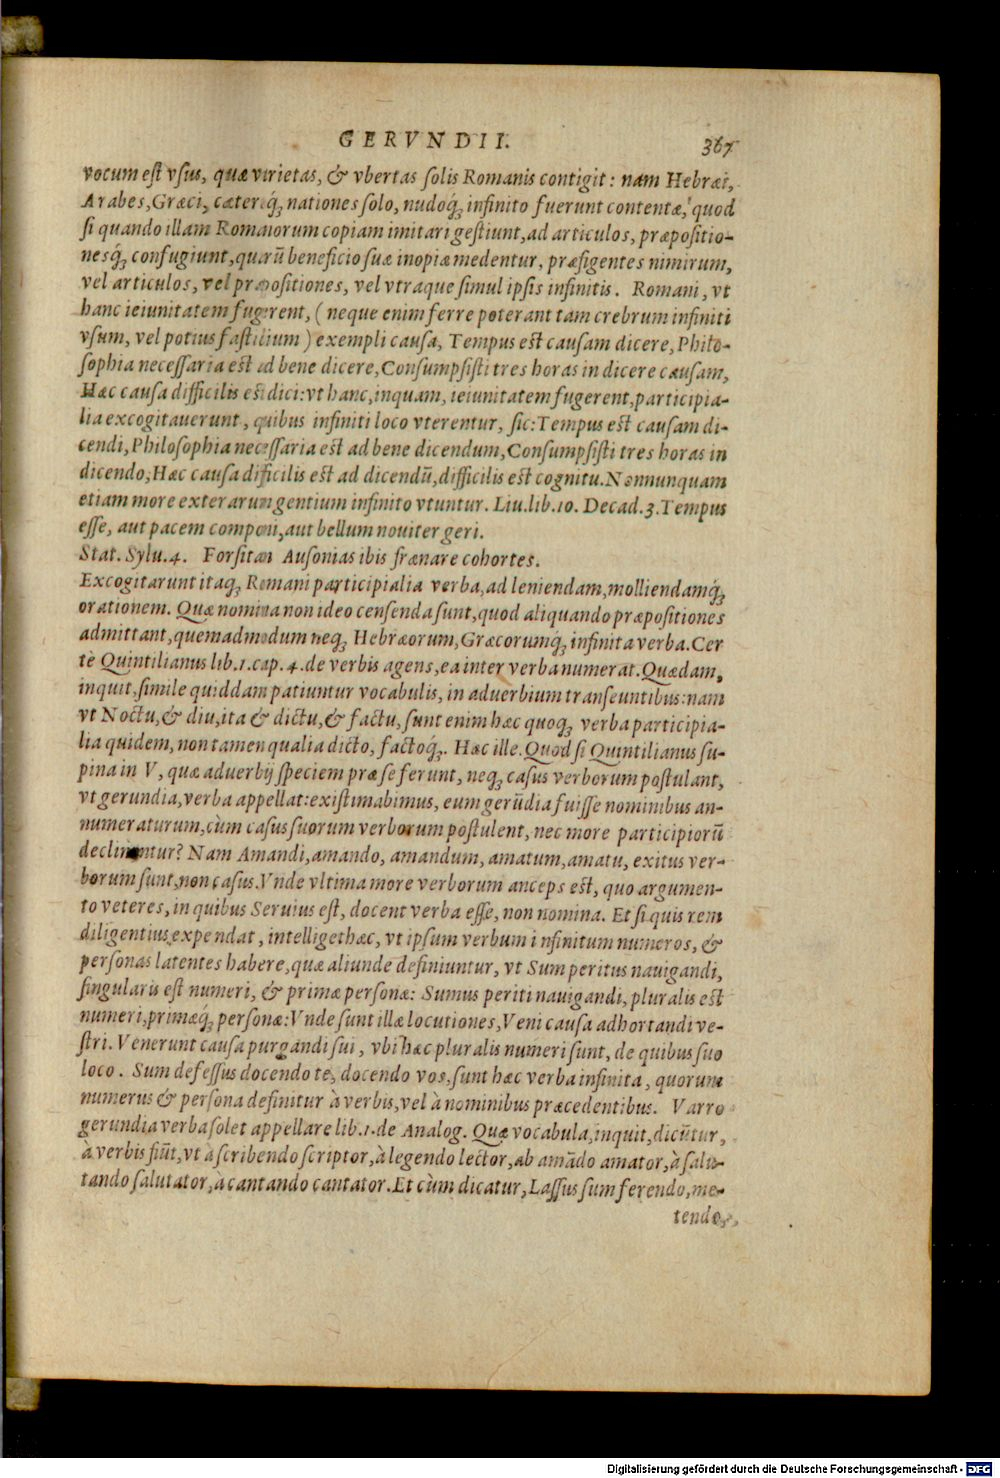 GERVNDII. 367
vocum est vsus, quæ virietas, & vbertas solis Romanis contigit: nam Hebræi,
Arabes, Græci, cæteriq́ꝫ nationes solo, nudoq́ꝫ infinito fuerunt contentæ, quod
si quando illam Romanorum copiam imitari gestiunt, ad articulos, præpositio-
nesq́ꝫ confugiunt, quarū beneficio suæ inopiæ medentur, præfigentes nimirum,
vel articulos, vel præpositiones, vel vtraque simul ipsis infinitis. Romani, vt
hanc ieiunitatem fugerent, (neque enim ferre poterant tam crebrum infiniti
vsum, vel potius fastidium) exempli causa, Tempus est causam dicere, Philo-
sophia necessaria est ad bene dicere, Consumpsisti tres horas in dicere causam,
Hæc causa difficilis est dici: vt hanc, inquam, ieiunitatem fugerent, participia-
lia excogitauerunt, quibus infiniti loco vterentur, sic: Tempus est causam di-
cendi, Philosophia necessaria est ad bene dicendum, Consumpsisti tres horas in
dicendo, Hæc causa difficilis est ad dicendū, difficilis est cognitu. Nonnunquam
etiam more exterarum gentium infinito vtuntur. Liu. lib. 10. Decad. 3. Tempus
esse, aut pacem componi, aut bellum nouiter geri.
Stat. Sylu. 4. Forsitan Ausonias ibis frænare cohortes.
Excogitarunt itaqꝫ Romani participialia verba, ad leniendam, molliendamq́ꝫ
orationem. Quæ nomina non ideo censenda sunt, quod aliquando præpositiones
admittant, quemadmodum neqꝫ Hebræorum, Græcorumq́ꝫ infinita verba. Cer
tè Quintilianus lib. 1. cap. 4. de verbis agens, ea inter verba numerat. Quædam,
inquit, simile quiddam patiuntur vocabulis, in aduerbium transeuntibus: nam
vt Noctu, & diu, ita & dictu, & factu, sunt enim hæc quoqꝫ verba participia-
lia quidem, non tamen qualia dicto, factoq́ꝫ. Hæc ille. Quod si Quintilianus su-
pina in V, quæ aduerbij speciem præ se ferunt, neqꝫ casus verborum postulant,
vt gerundia, verba appellat: existimabimus, eum gerūdia fuisse nominibus an-
numeraturum, cùm casus suorum verborum postulent, nec more participiorū
declinentur? Nam Amandi, amando, amandum, amatum, amatu, exitus ver-
borum sunt, non casus. Vnde vltima more verborum anceps est, quo argumen-
to veteres, in quibus Seruius est, docent verba esse, non nomina. Et si quis rem
diligentius expendat, intelliget hæc, vt ipsum verbum infinitum numeros, &
personas latentes habere, quæ aliunde definiuntur, vt Sum peritus nauigandi,
singularis est numeri, & primæ personæ: Sumus periti nauigandi, pluralis est
numeri, primæq́ꝫ personæ: Vnde sunt illæ locutiones, Veni causa adhortandi ve-
stri. Venerunt causa purgandi sui, vbi hæc pluralis numeri sunt, de quibus suo
loco. Sum defessus docendo te, docendo vos, sunt hæc verba infinita, quorum
numerus & persona definitur à verbis, vel à nominibus præcedentibus. Varro
gerundia verba solet appellare lib. 1. de Analog. Quæ vocabula, inquit, dicūtur,
à verbis fiūt, vt à scribendo scriptor, à legendo lector, ab amādo amator, à salu-
tando salutator, à cantando cantator. Et cùm dicatur, Lassus sum ferendo, me-
tendo,
Digitalisierung gefördert durch die Deutsche Forschungsgemeinschaft - DFG